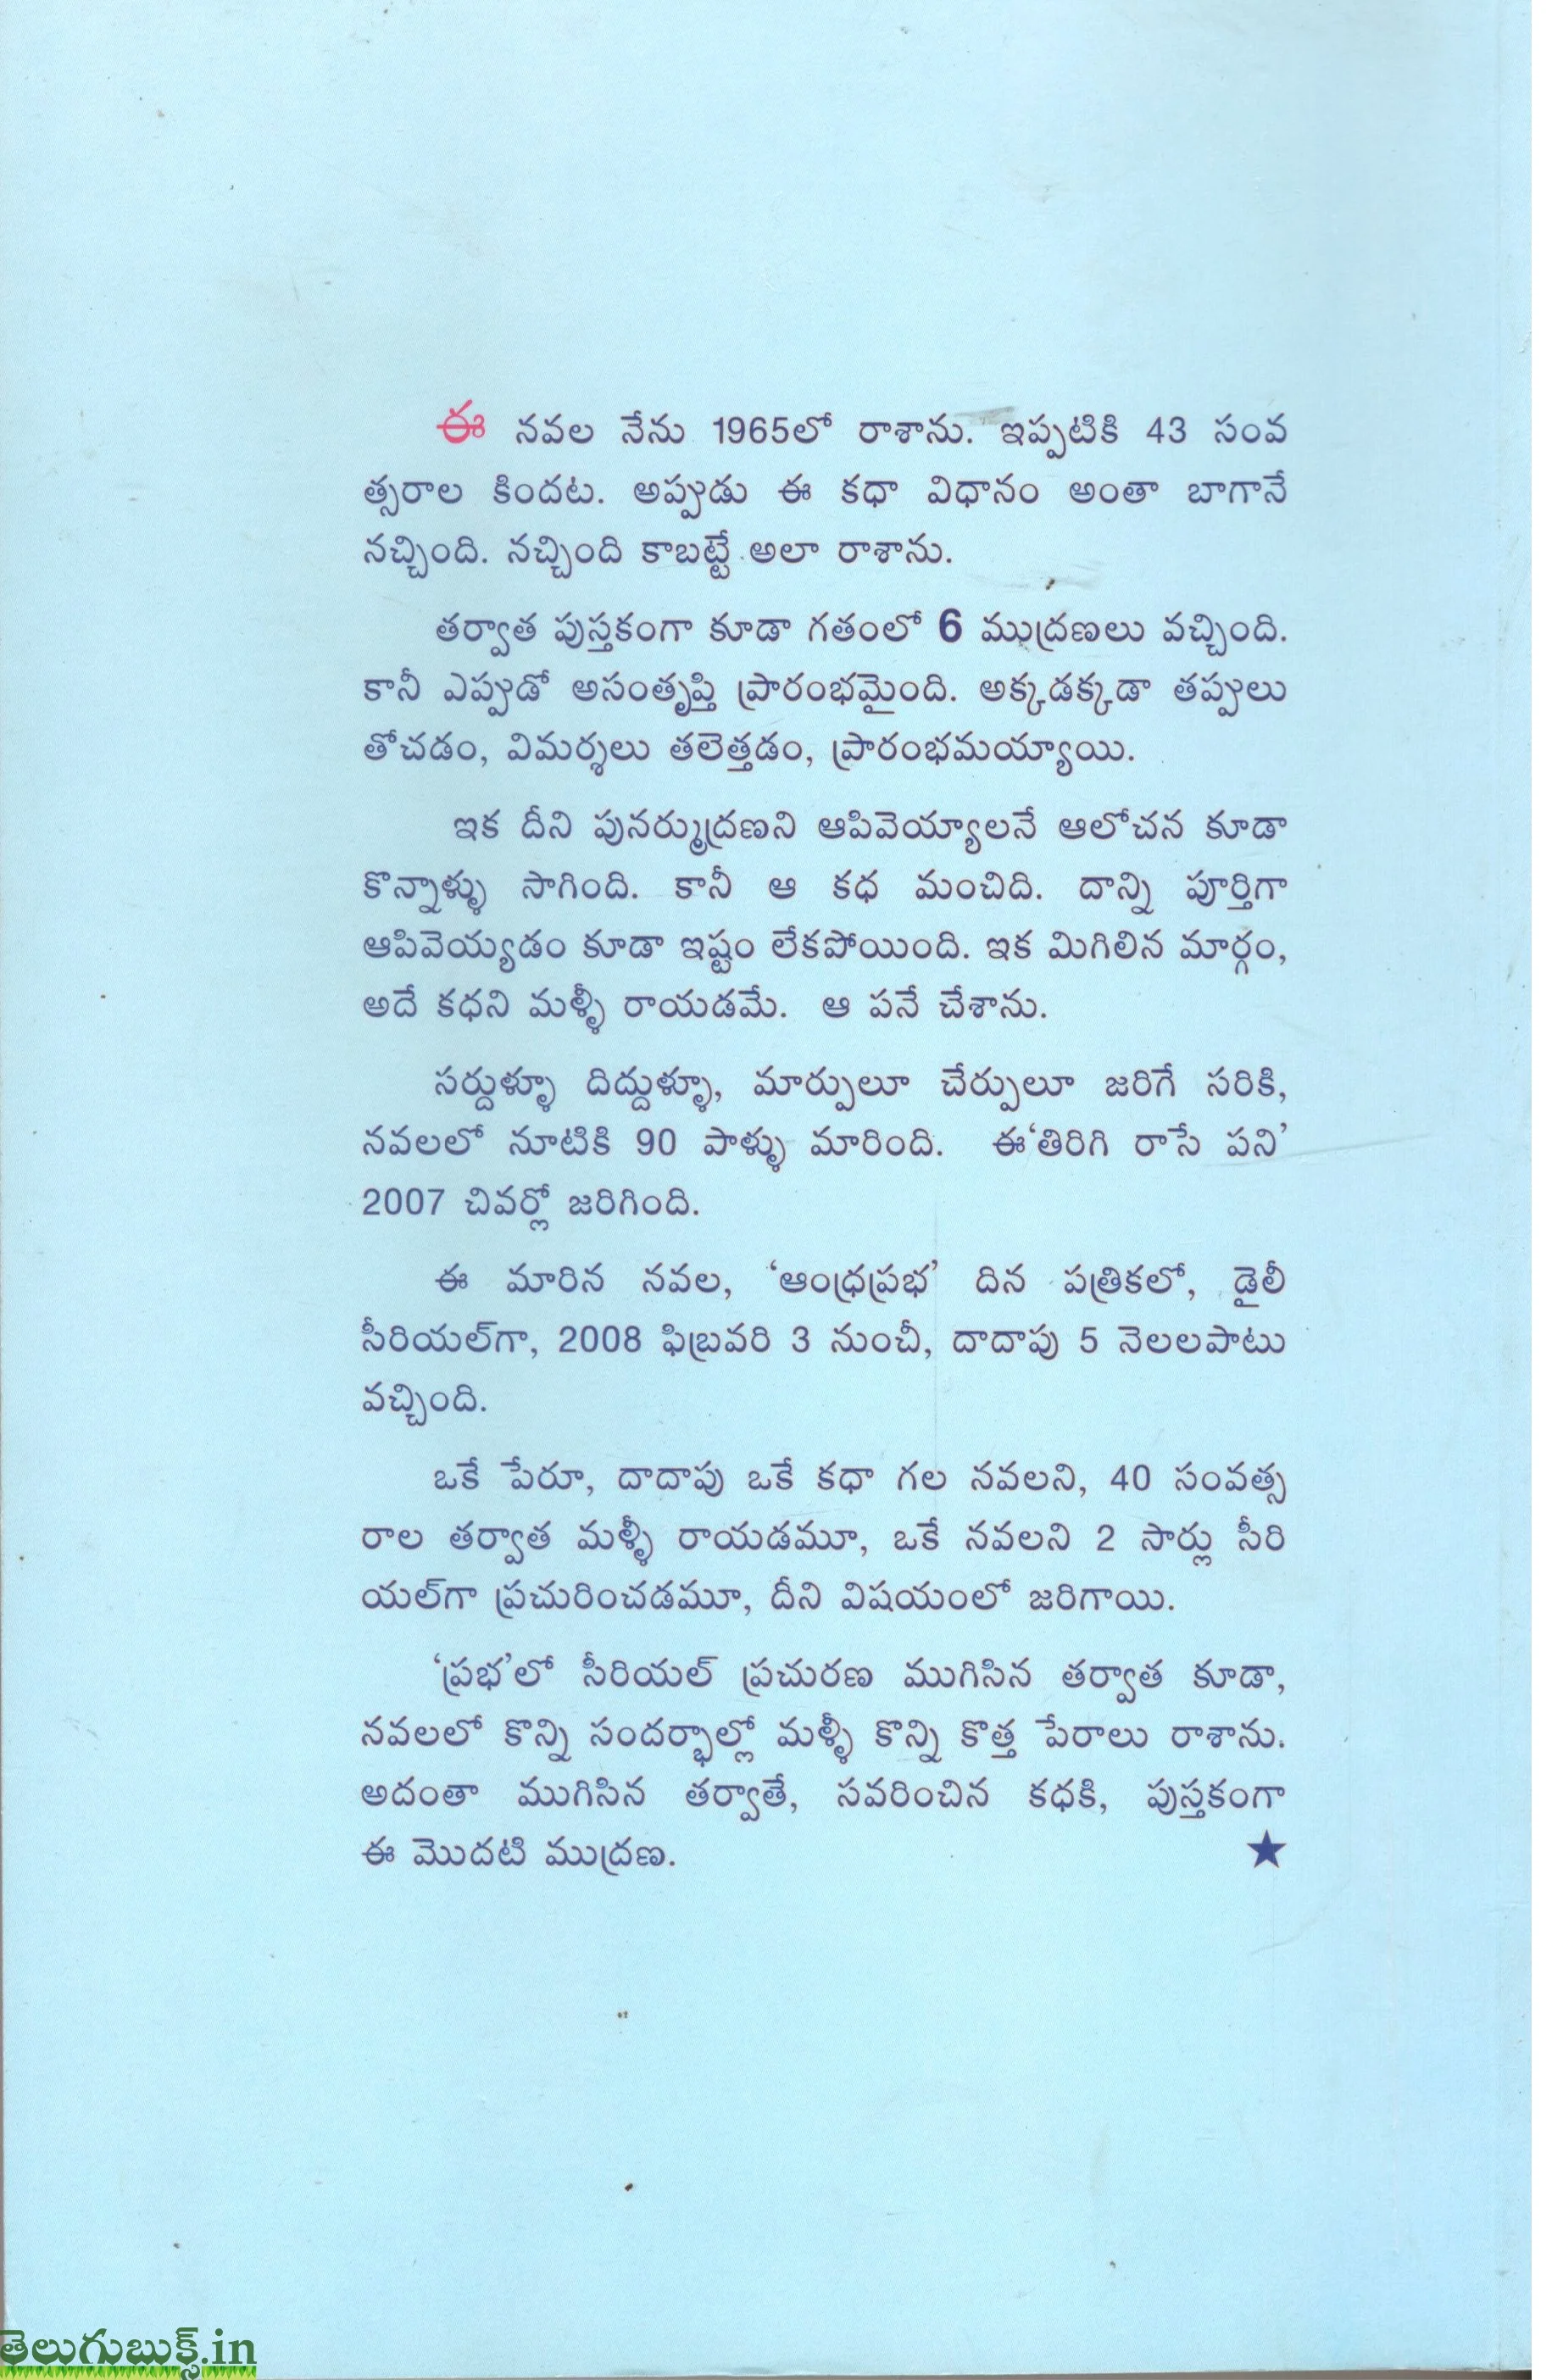 ఈ నవల నేను 1965లో రాశాను. ఇప్పటికి 43 సంవ
త్సరాల కిందట. అప్పుడు ఈ కధా విధానం అంతా బాగానే
నచ్చింది. నచ్చింది కాబట్టే అలా రాశాను.
తర్వాత పుస్తకంగా కూడా గతంలో 6 ముద్రణలు వచ్చింది.
కానీ ఎప్పుడో అసంతృప్తి ప్రారంభమైంది. అక్కడక్కడా తప్పులు
తోచడం, విమర్శలు తలెత్తడం, ప్రారంభమయ్యాయి.
ఇక దీని పునర్ముద్రణని ఆపివెయ్యాలనే ఆలోచన కూడా
కొన్నాళ్ళు సాగింది. కానీ ఆ కధ మంచిది. దాన్ని పూర్తిగా
ఆపివెయ్యడం కూడా ఇష్టం లేకపోయింది. ఇక మిగిలిన మార్గం,
అదే కధని మళ్ళీ రాయడమే. ఆ పనే చేశాను.
సర్దుళ్ళూ దిద్దుళ్ళూ, మార్పులూ చేర్పులూ జరిగే సరికి,
నవలలో నూటికి 90 పాళ్ళు మారింది. ఈ‘తిరిగి రాసే పని’
2007 చివర్లో జరిగింది.
ఈ మారిన నవల, ‘ఆంధ్రప్రభ’ దిన పత్రికలో, డైలీ
సీరియల్‌గా, 2008 ఫిబ్రవరి 3 నుంచీ, దాదాపు 5 నెలలపాటు
వచ్చింది.
ఒకే పేరూ, దాదాపు ఒకే కధా గల నవలని, 40 సంవత్స
రాల తర్వాత మళ్ళీ రాయడమూ, ఒకే నవలని 2 సార్లు సీరి
యల్‌గా ప్రచురించడమూ, దీని విషయంలో జరిగాయి.
‘ప్రభ’లో సీరియల్ ప్రచురణ ముగిసిన తర్వాత కూడా,
నవలలో కొన్ని సందర్భాల్లో మళ్ళీ కొన్ని కొత్త పేరాలు రాశాను.
అదంతా ముగిసిన తర్వాతే, సవరించిన కధకి, పుస్తకంగా
ఈ మొదటి ముద్రణ. ★
తెలుగుబుక్స్.in